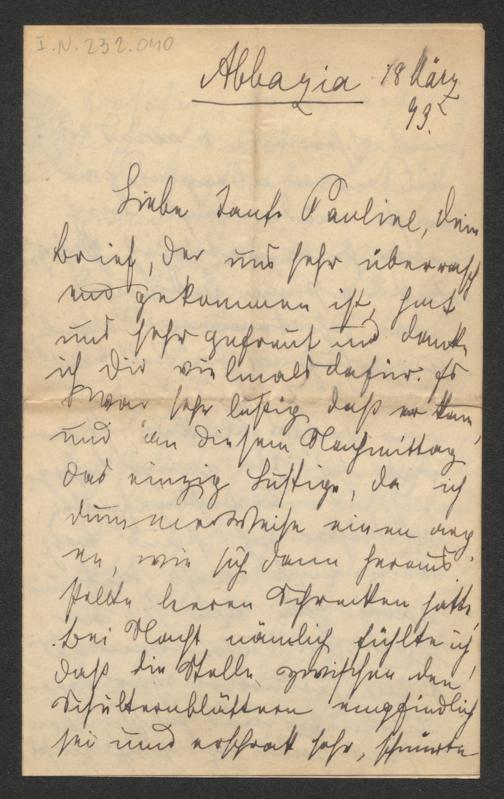 I.N. 232.040
Abbazia 18 März
93.
Liebe Tante Pauline, Dein
Brief, der uns sehr überrasch
end gekommen ist, hat
uns sehr gefreut und danke
ich Dir vielmals dafür. Es
war sehr lustig daß er kam,
und an diesem Nachmittag
das einzig Lustige, da ich
dummerweise einen arg
en, wie sich dann heraus
stellte leeren Schrecken hatte.
Bei Nacht nämlich fühlte ich,
daß die Stelle zwischen den
Schulternblättern empfindlich
sei und erschrak sehr, schnürte